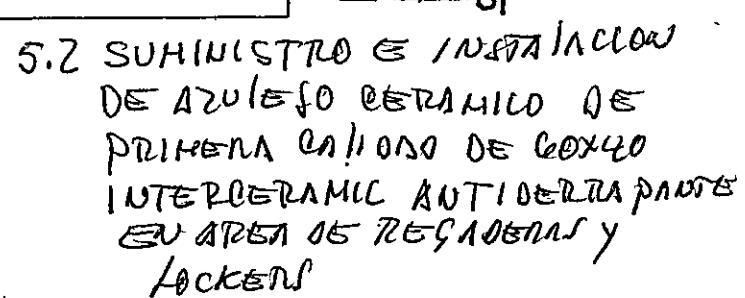 5.2 SUMINISTRO E INSTALACION
DE AZULEJO CERAMICO DE
PRIMERA CALIDAD DE 60X40
INTERCERAMIC ANTIDERRAPANTE
EN AREA DE REGADERAS Y
LOCKERS